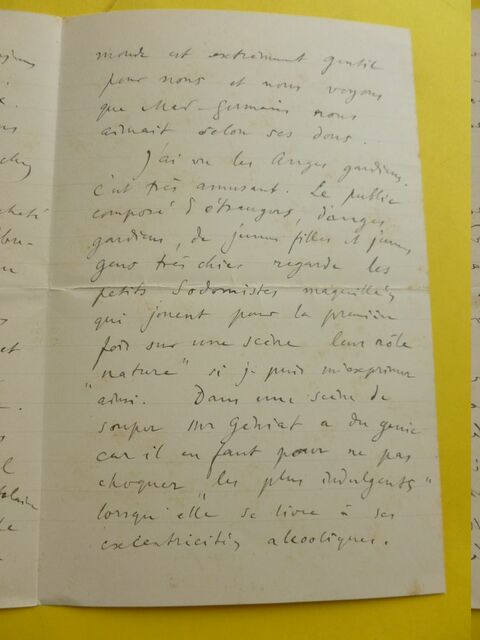 monde est extrêmement gentil
pour nous et nous voyons
que Mad-Germain nous
aimait selon ses dons.
J'ai vu les Anges gardiens.
c'est très amusant. Le public
composé d'étrangers, d'anges
gardiens, de jeunes filles et jeunes
gens très chics regarde les
petits Sodomistes maquillés
qui jouent pour la première
fois sur une scène leur rôle
"nature" si je puis m'exprimer
ainsi. Dans une scène de
souper Mr Géniat a du génie
car il en faut pour ne pas
choquer "les plus indulgents"
lorsqu'elle se livre à ses
excentricités alcooliques.